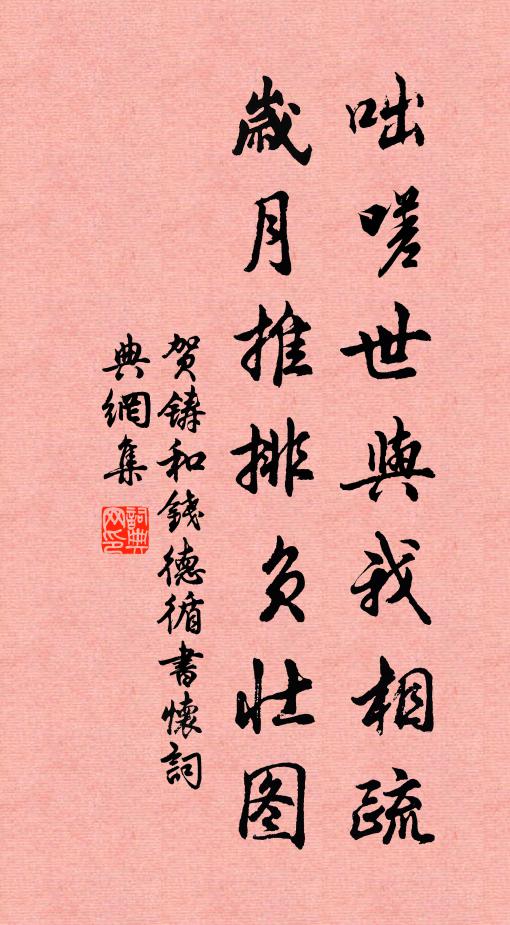 咄嗟世與我相疏
歲月推排負壯图
贺鑄和錢德循書懷詞
典網集
詞典网印